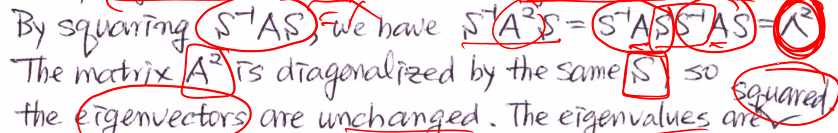 By squaring S⁻¹AS, we have S⁻¹A²S = (S⁻¹AS)(S⁻¹AS) = Λ²
The matrix A² is diagonalized by the same S, so
the eigenvectors are unchanged. The eigenvalues are squared